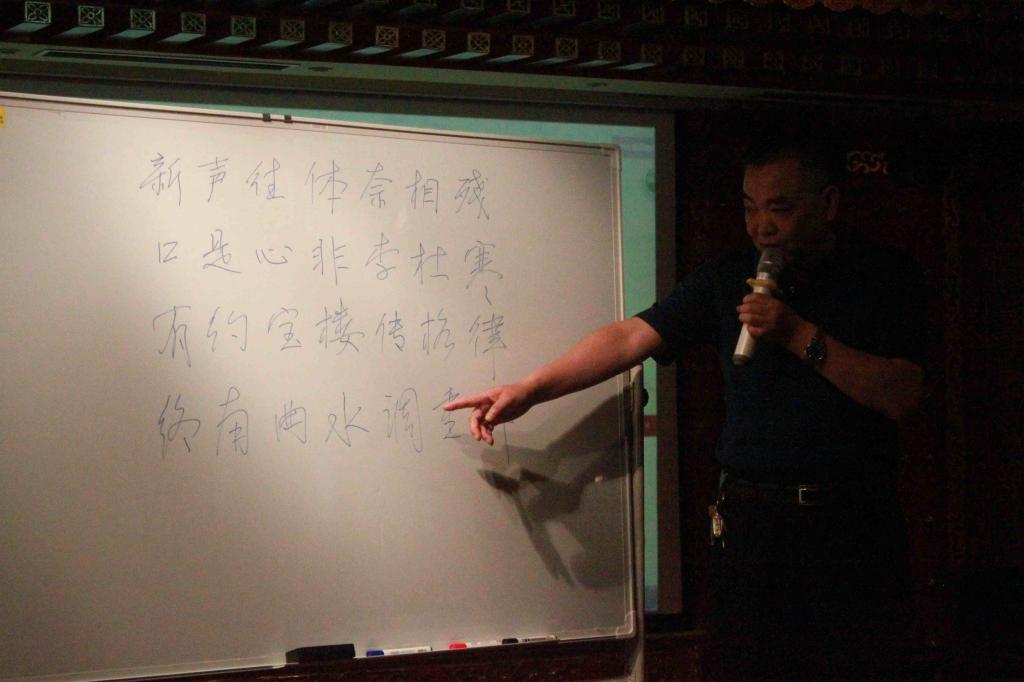 新声往体奈相残
口是心非李杜寒
有约宝楼传格律
终南曲水调